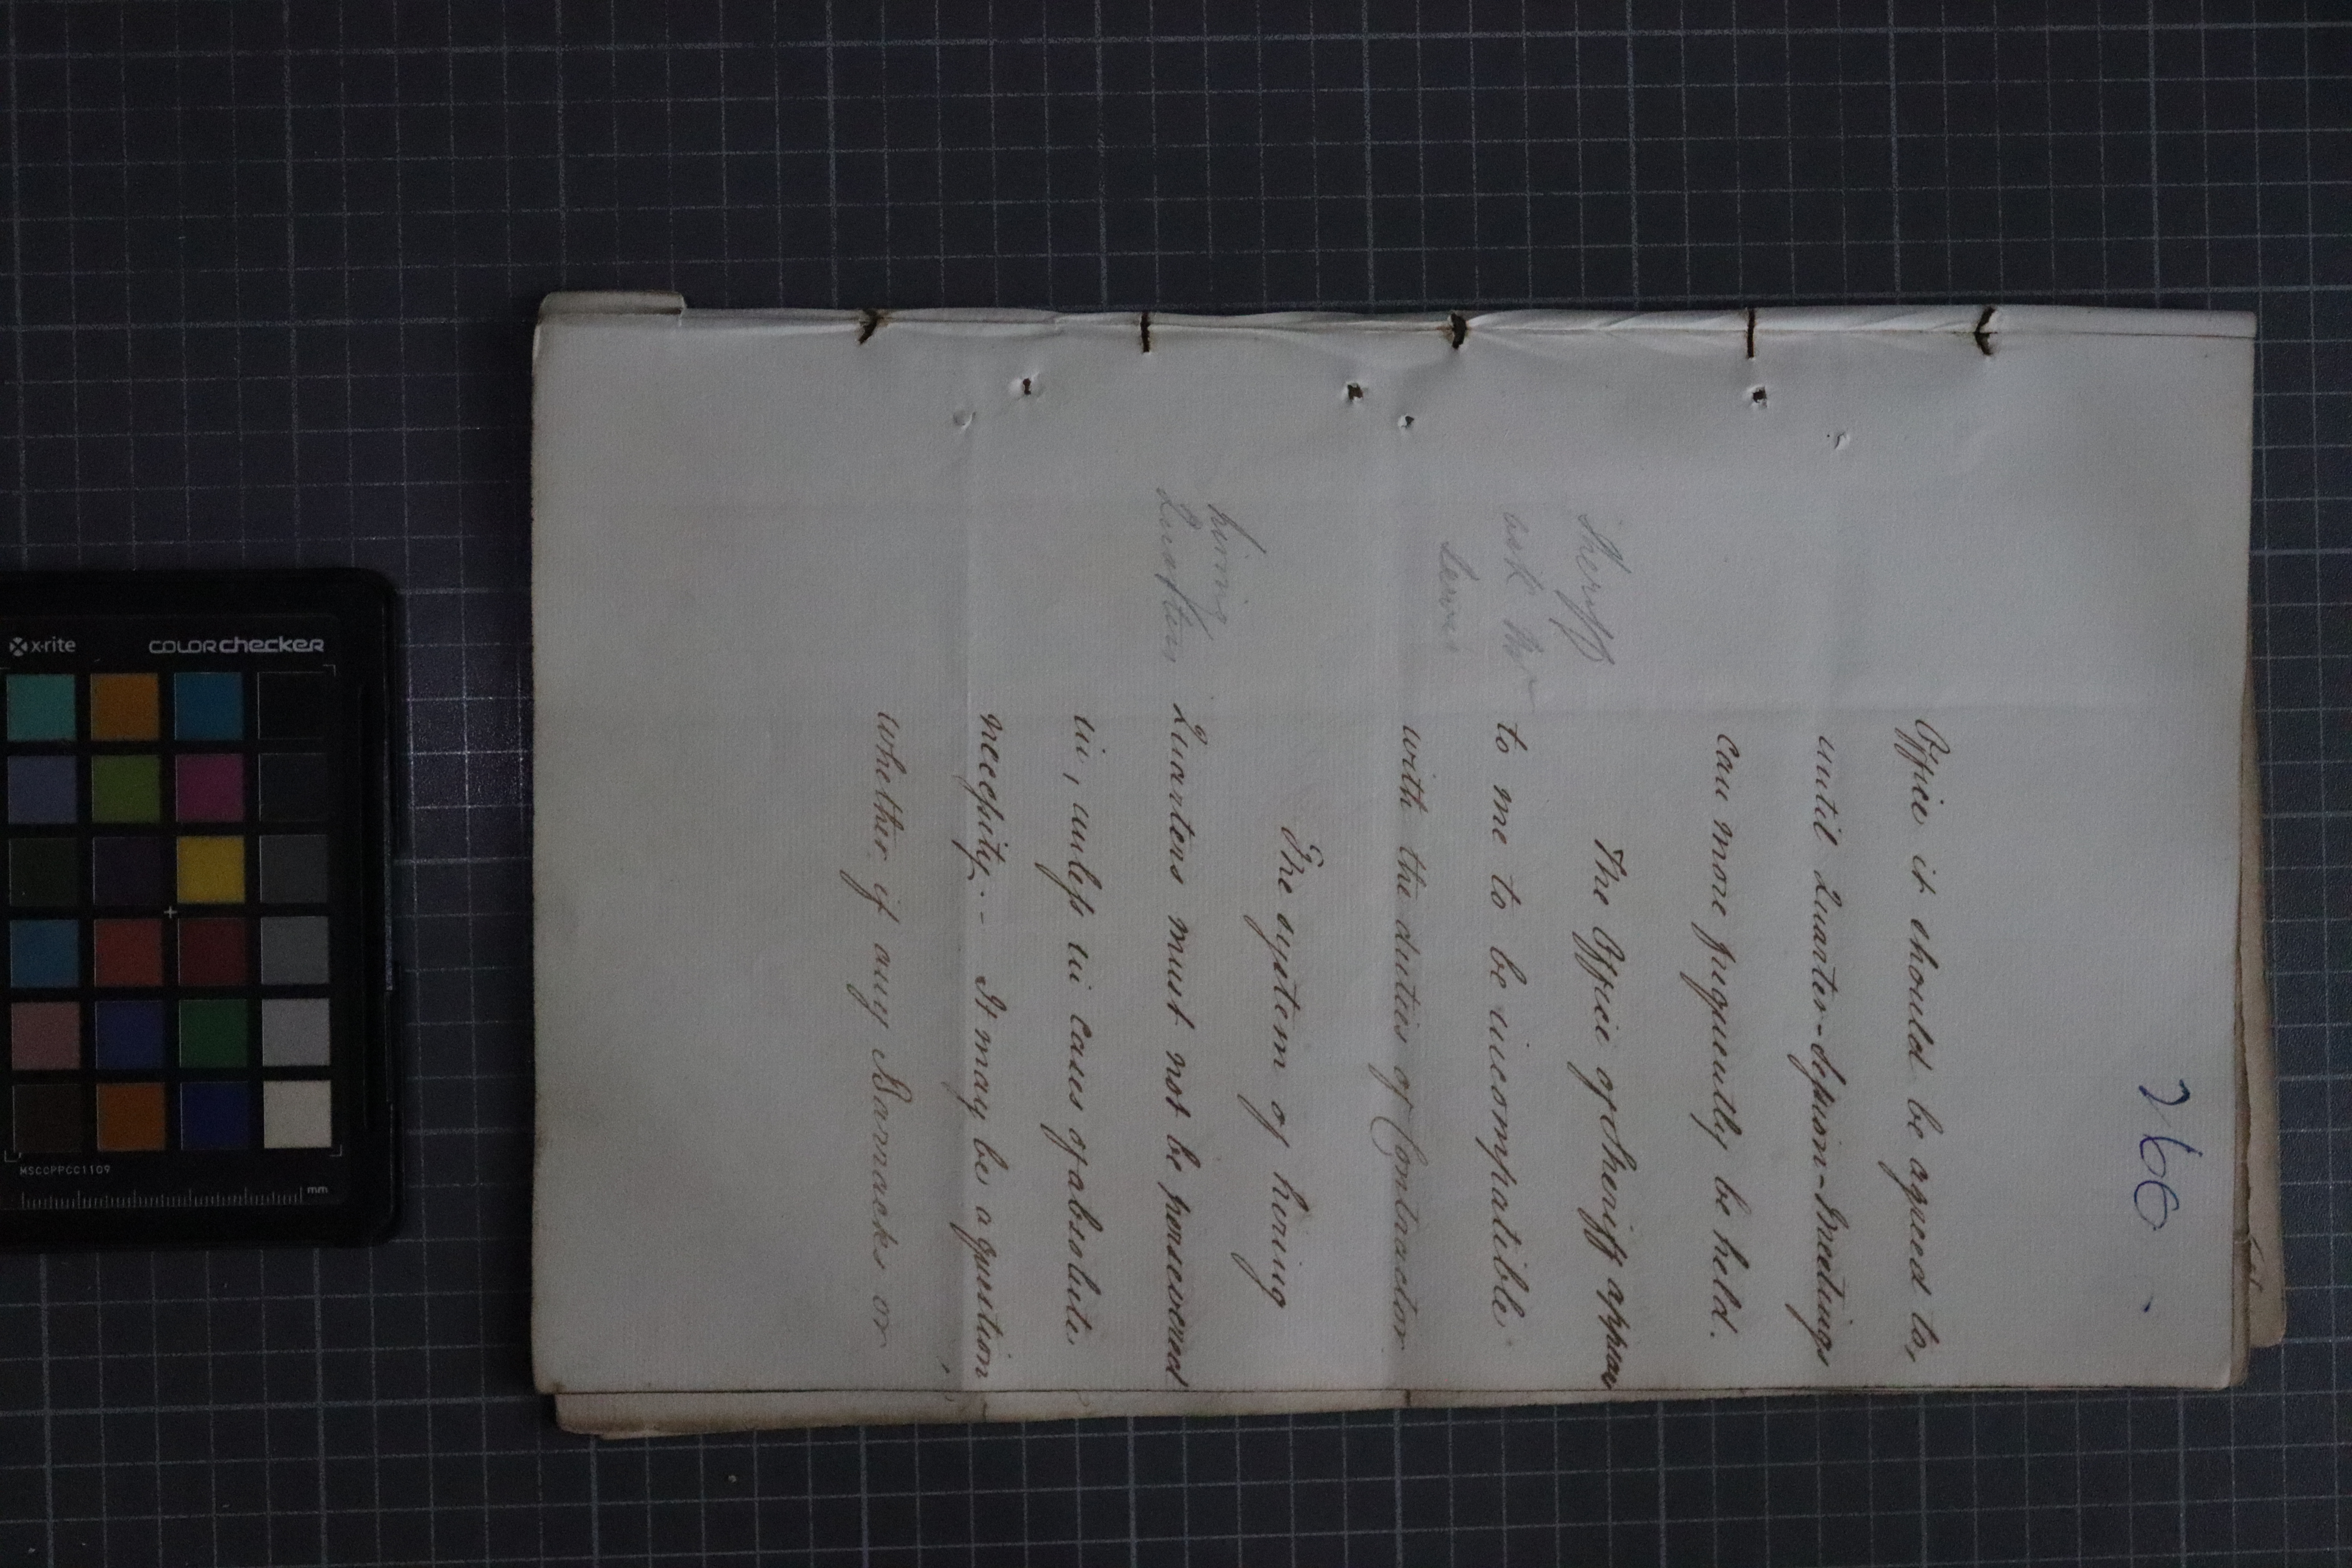 266
Office it should be agreed to,
until Quarter-Session-Meetings
can more frequently be held.
The Office of Sheriff appears
to me to be incompatible
with the duties of Contractor
Sheriff
ask Mr
The system of hiring
Quarters must not be persevered
in, unless in cases of absolute
necessity.- It may be a question
whether if any Barracks or
hiring
Quarters
x-rite
colorchecker
MSCCPPCC1109
mm